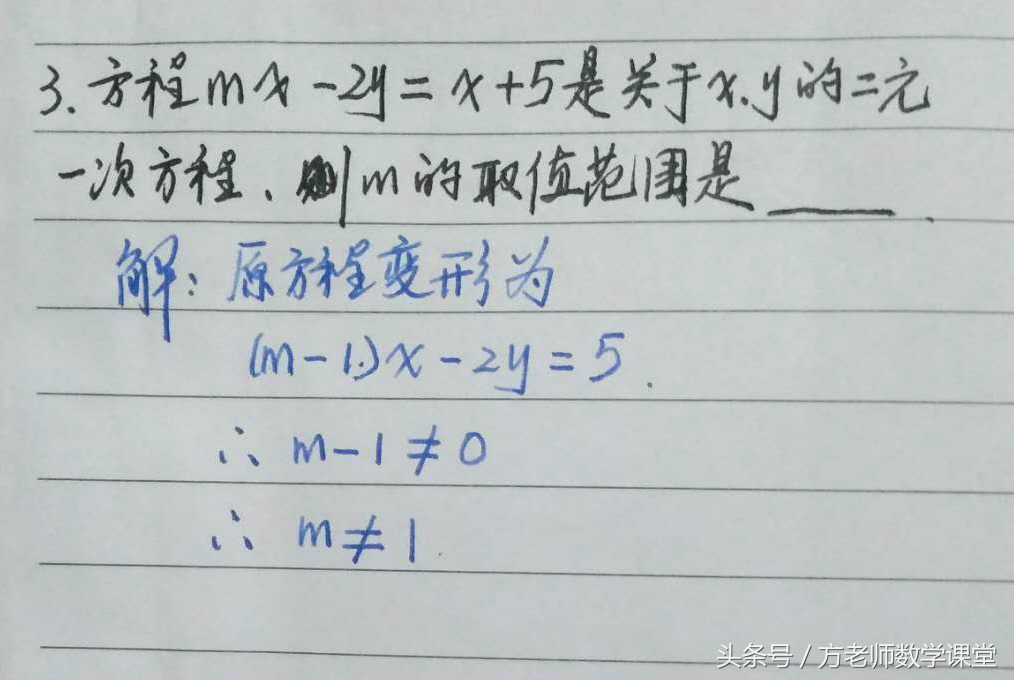 3.方程mx-2y=x+5是关于x.y的二元
一次方程、则m的取值范围是____.
解:原方程变形为
(m-1)x-2y=5.
∴ m-1≠0
∴ m≠1.
头条号/方老师数学课堂